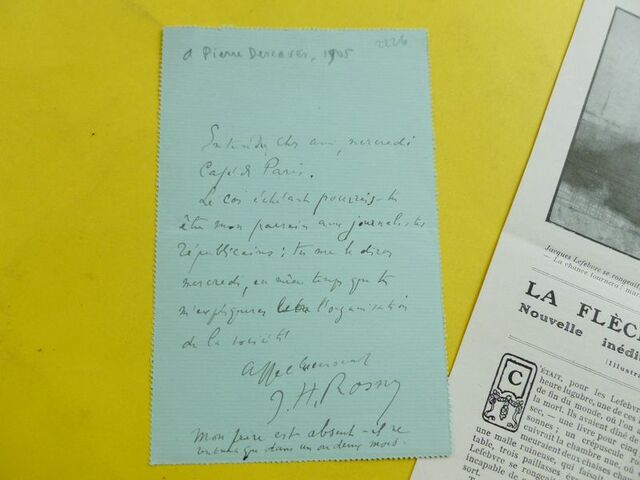 à Pierre Descaves, 1905
2226
Entendu, cher ami, mercredi
Café de Paris.
Le cas échéant pourrais-tu
être mon parrain aux journalistes
républicains ; tu me le diras
mercredi, en même temps que tu
m'expliqueras l'organisation
de la société
Affectueusement
J. H. Rosny
Mon frère est absent - il ne
que dans un ou deux mois.
Jacques Lefebvre se rongeait
— La chance tournera !
LA FLÈC
Nouvelle inédi
(Illustra
C'ÉTAIT, pour les Lefeb
heure lugubre, une de ces
de fin du monde, où l'on
la mort. Ils avaient dîné
sec, — une livre pour
sonnes ; un crépuscule
vrait la chambre nue, où
meuraient deux chaises
table, trois paillasses,
une malle ruineuse,
Lefebvre se rongeait
incapable de
sort.